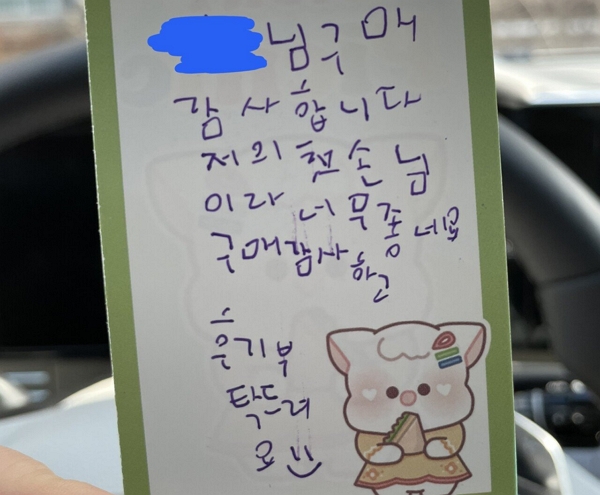 님 구매
감사합니다
저의 첫 손님
이라 너무 좋네요
구매 감사하고
후기 부
탁드려
요